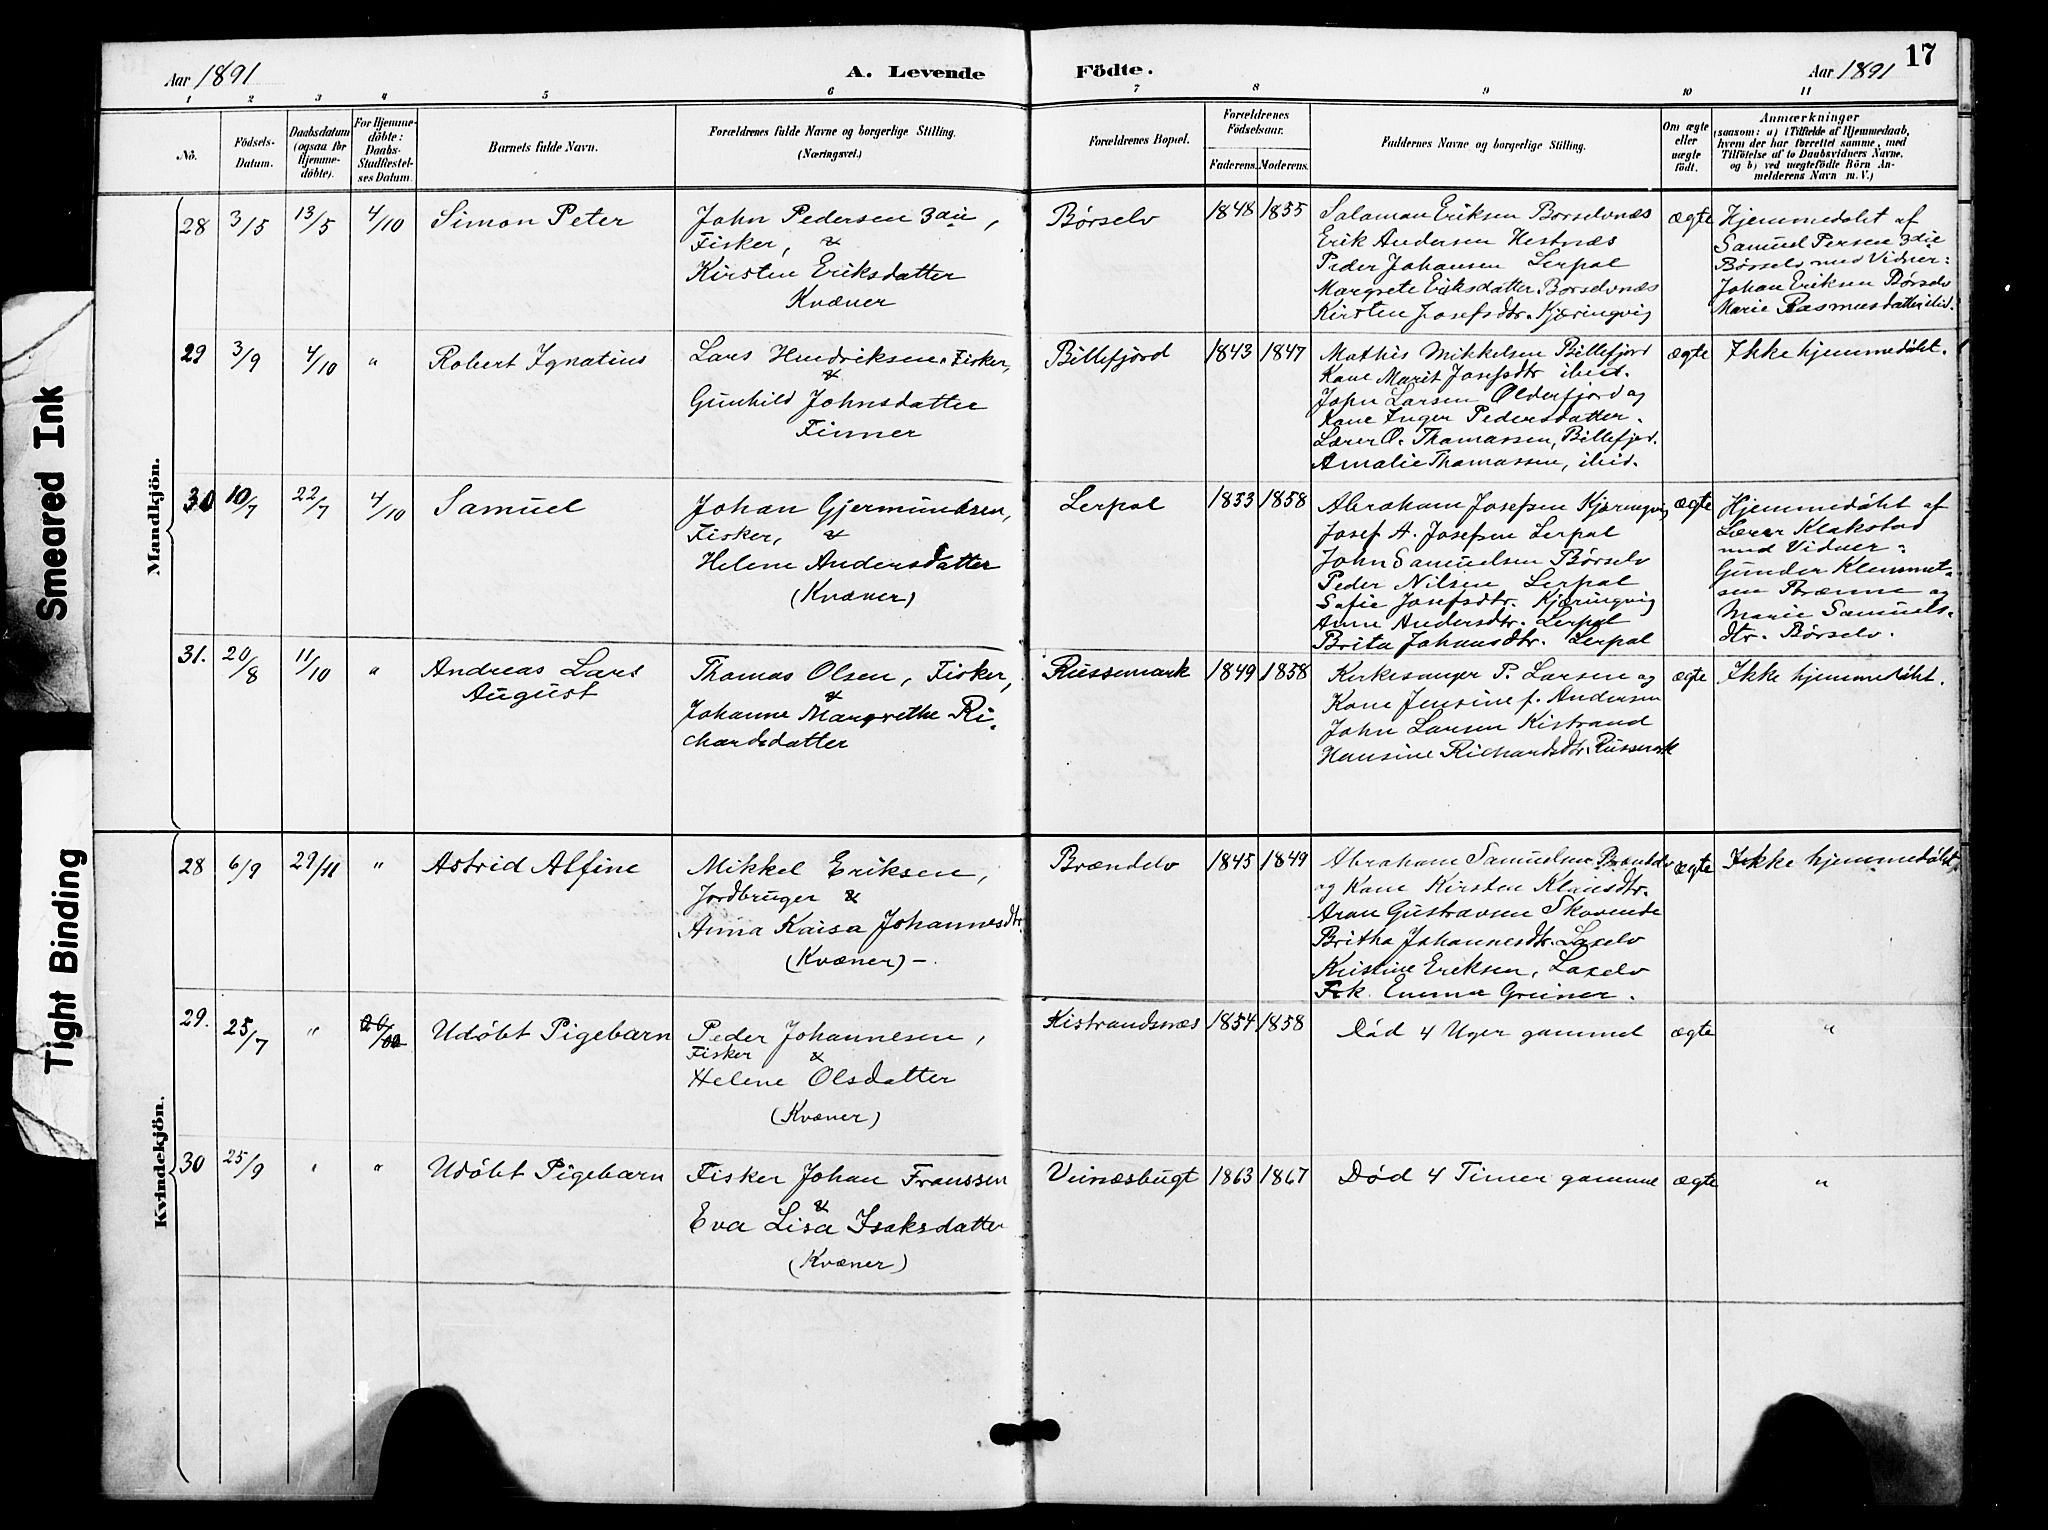 17
Aar 1891
A. Levende Födte.
Aar 1891
1 2 3 4 5 6 7 8 9 10 11
No.
Födsels-
Datum.
Daabsdatum
(ogsaa for
Hjemme-
döbte).
For Hjemme-
döbte:
Daabs-
Stadfæstel-
ses Datum.
Barnets fulde Navn.
Forældrenes fulde Navne og borgerlige Stilling.
(Næringsvei.)
Forældrenes Bopæl.
Forældrenes
Födselsaar.
Faderens. Moderens.
Faddernes Navne og borgerlige Stilling.
Om ægte
eller
uægte
födt.
Anmærkninger
(saasom: a) i Tilfælde af Hjemmedaab,
hvem der har forrettet samme, med
Tilföielse af to Daabsvidners Navne,
og b) ved uægtefödte Börn An-
melderens Navn m. V.)
Mandkjön.
28 3/5 13/5 4/10 Simon Peter
John Pedersen 3die,
Fisker, &
Kirsten Eriksdatter
Kvæner
Børselv 1848 1855
Salaman Eriksen Børselvnæs
Erik Andersen Hestnæs
Peder Johansen Lerpol
Margrete Eriksdatter Børselvnæs
Kirsten Josefsdtr. Kjæringvig
ægte
Hjemmedøbt af
Samuel Persen 3die
Børselv med Vidner:
Johan Eriksen Børselv
Marie Rasmusdatter ibid.
29 3/9 4/10 " Robert Ignatius
Lars Hendriksen, Fisker,
&
Gunhild Johnsdatter
Finner
Billefjord 1843 1847
Mathis Mikkelsen Billefjord
Kone Marit Josefsdtr ibid.
John Larsen Olderfjord og
Kone Inger Pedersdatter.
Lærer O. Thomassen, Billefjord.
Amalie Thomassen, ibid.
ægte
Ikke hjemmedøbt.
30 10/7 22/7 4/10 Samuel
Johan Gjermundsen,
Fisker, &
Helene Andersdatter
(Kvæner)
Lerpol 1833 1858
Abraham Josefsen Kjæringvig
Josef A. Josefsen Lerpol
John Samuelsen Børselv
Peder Nilsen Lerpol
Safie Josefsdtr. Kjæringvig
Anne Andersdtr. Lerpol
Brita Johansdtr. Lerpol
ægte
Hjemmedøbt af
Lærer Klakstad
med Vidner:
Gunder Klemmet-
sen Brænne og
Marie Samuels-
dtr. Børselv.
31. 20/8 11/10 " Andreas Lars
August
Thomas Olsen, Fisker,
&
Johanne Margrethe Ri-
chardsdatter
Russemark 1849 1858
Kirkesanger P. Larsen og
Kone Jensine f. Andersen
John Larsen Kistrand
Hansine Richardsdtr. Russemrk
ægte
Ikke hjemmedøbt.
Kvindekjön.
28 6/9 29/11 " Astrid Alfine
Mikkel Eriksen,
Jordbruger &
Anna Kaisa Johannesdtr.
(Kvæner) -.
Brændelv 1845 1849
Abraham Samuelsen Brændelv
og Kone Kirsten Klausdtr.
Aron Gustavsen Skovende
Britha Johannesdtr. Laxelv
Kristine Eriksen, Laxelv
Frk. Emma Greiner.
ægte
Ikke hjemmedøbt
29. 25/7 " Udøbt Pigebarn
Peder Johannesen,
Fisker &
Helene Olsdatter
(Kvæner)
Kistrandsnæs 1854 1858
Død 4 Uger gammel
ægte "
30 25/9 " " Udøbt Pigebarn
Fisker Johan Franssen
&
Eva Lisa Isaksdatter
(Kvæner)
Viinæsbugt 1863 1867
Død 4 Timer gamme
ægte "
Smeared Ink
Tight Binding